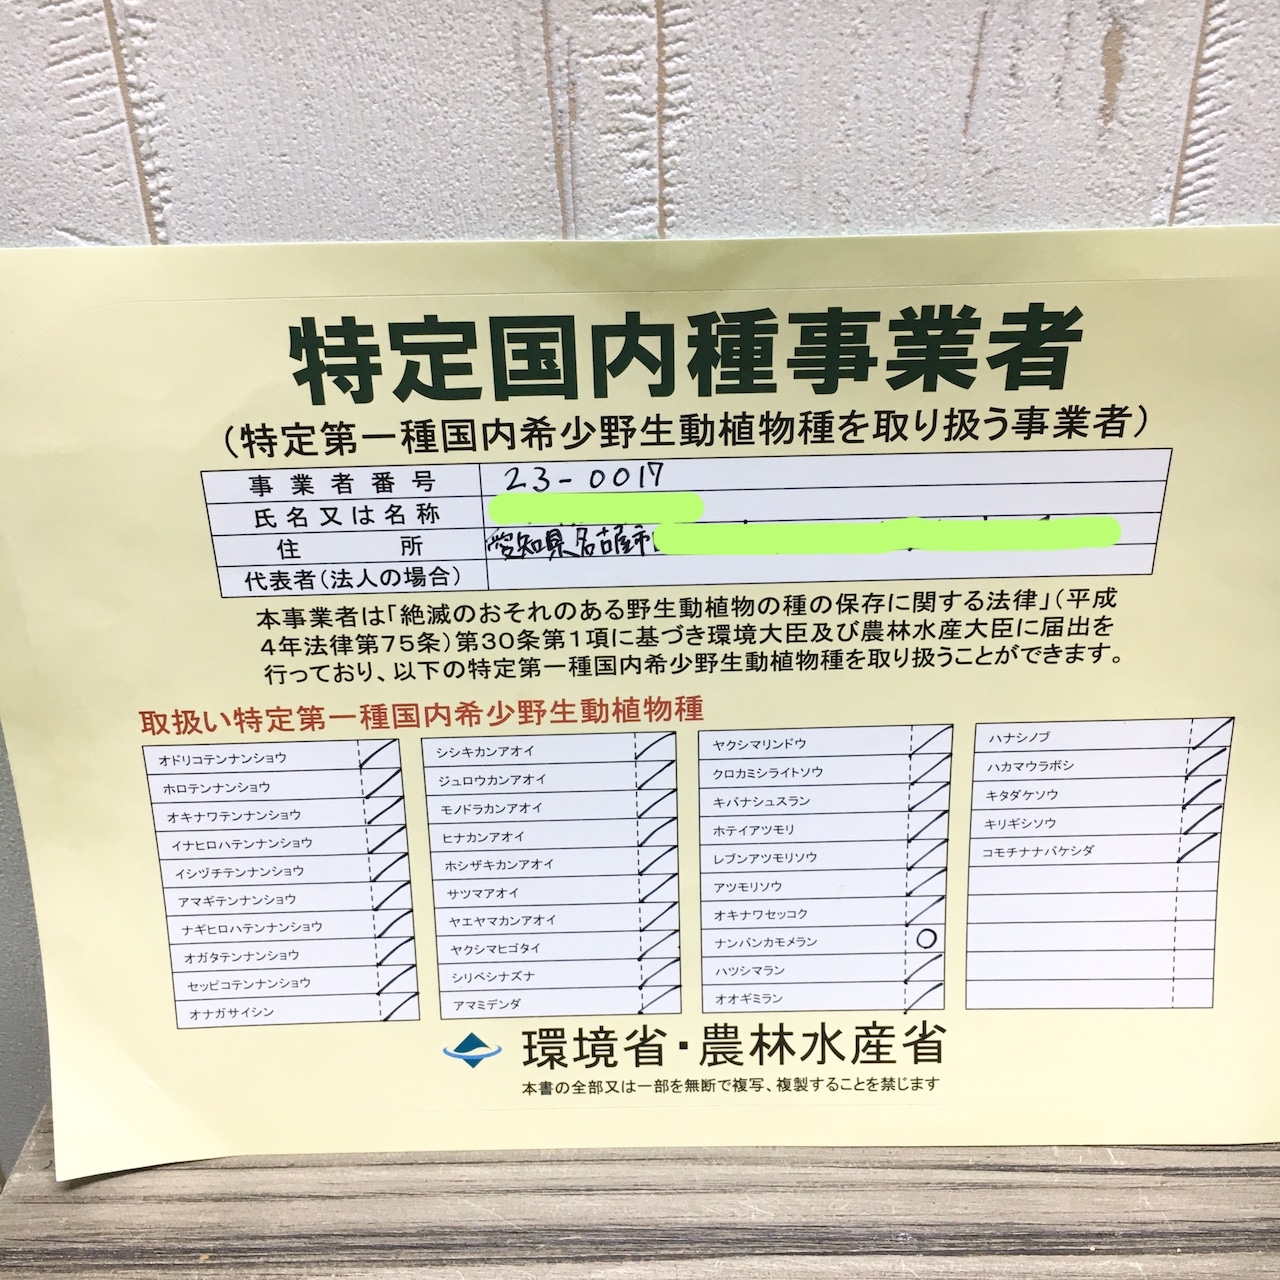 特定国内種事業者
（特定第一種国内希少野生動植物種を取り扱う事業者）
事業者番号 23-0017
氏名又は名称
住所 愛知県名古屋市
代表者（法人の場合）
本事業者は「絶滅のおそれのある野生動植物の種の保存に関する法律」（平成
4年法律第75条）第30条第1項に基づき環境大臣及び農林水産大臣に届出を
行っており、以下の特定第一種国内希少野生動植物種を取り扱うことができます。
取扱い特定第一種国内希少野生動植物種
オドリコテンナンショウ
ホロテンナンショウ
オキナワテンナンショウ
イナヒロハテンナンショウ
イシヅチテンナンショウ
アマギテンナンショウ
ナギヒロハテンナンショウ
オガタテンナンショウ
セッピコテンナンショウ
オナガサイシン
シシキカンアオイ
ジュロウカンアオイ
モノドラカンアオイ
ヒナカンアオイ
ホシザキカンアオイ
サツマアオイ
ヤエヤマカンアオイ
ヤクシマヒゴタイ
シリベシナズナ
アマミデンダ
ヤクシマリンドウ
クロカミシライトソウ
キバナシュスラン
ホテイアツモリ
レブンアツモリソウ
アツモリソウ
オキナワセッコク
ナンバンカモメラン ○
ハツシマラン
オオギミラン
ハナシノブ
ハカマウラボシ
キタダケソウ
キリギシソウ
コモチナナバケシダ
環境省・農林水産省
本書の全部又は一部を無断で複写、複製することを禁じます